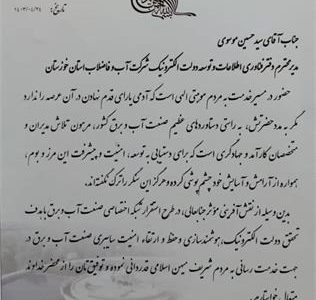 تاریخ: ۱۴۰۳/۰۸/۲۸
جناب آقای سید حسین موسوی
مدیر محترم دفتر فناوری اطلاعات و توسعه دولت الکترونیک شرکت آب و فاضلاب استان خوزستان
حضور در مسیر خدمت به مردم موهبتی الهی است که آدمی یارای قدم نهادن در آن عرصه را ندارد
مگر به مدد حضرتش، به راستی دستاوردهای عظیم صنعت آب و برق کشور، مرهون تلاش مدیران و
متخصصان کارآمد و جهادگری است که برای دستیابی به توسعه، امنیت و پیشرفت این مرز و بوم،
همواره از آرامش و آسایش خود چشم پوشی کرده و هرگز این سنگر را ترک نگفته‌اند.
بدین وسیله از نقش آفرینی موثر جنابعالی، در طرح استقرار شبکه اختصاصی صنعت آب و برق با هدف
تحقق دولت الکترونیک، هوشمندسازی و حفظ و ارتقاء امنیت سایبری صنعت آب و برق در
جهت خدمت رسانی به مردم شریف میهن اسلامی قدردانی نموده و توفیق‌تان را از محضر خداوند
متعال خواستارم.